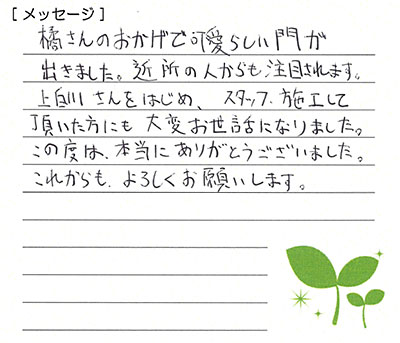 [メッセージ]
橘さんのおかげで可愛らしい門が
出きました。近所の人からも注目されます。
上白川さんをはじめ、スタッフ、施工して
頂いた方にも大変お世話になりました。
この度は、本当にありがとうございました。
これからも、よろしくお願いします。